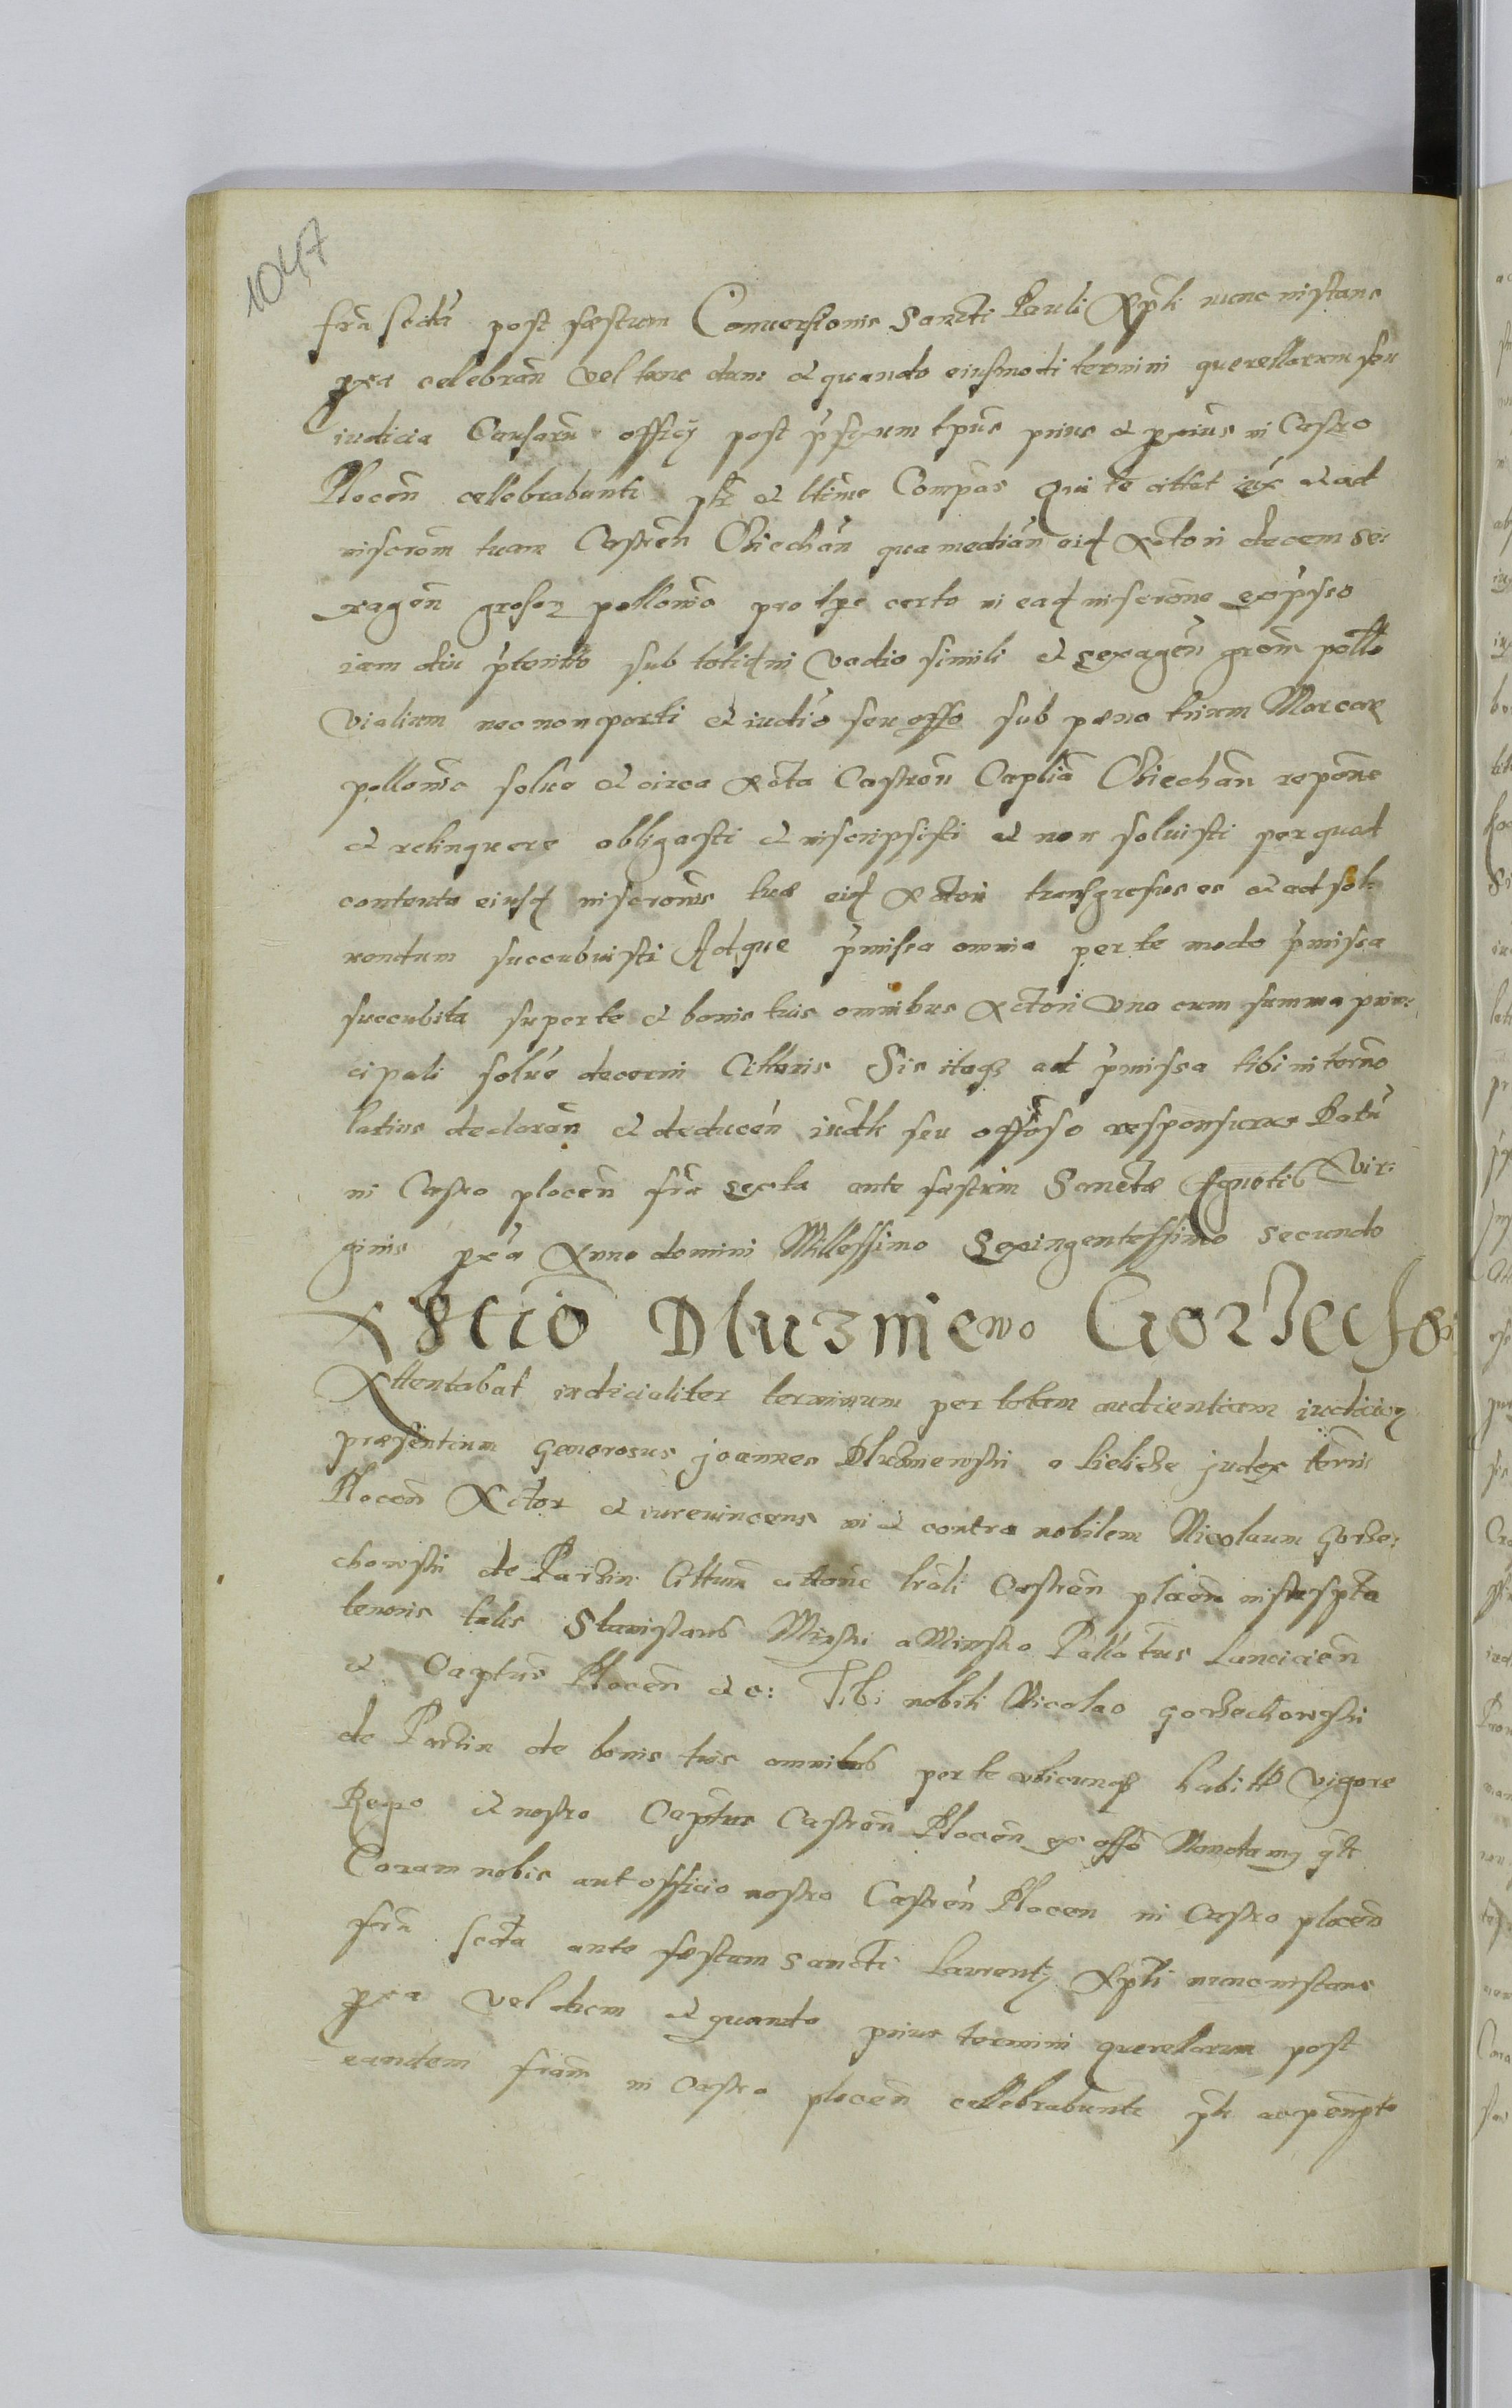 1047
fria scda post festum Conuersionis Sancti Pauli Apli nunc instans
pxa celebran vel tunc dum et quando eiusmodi termini querellarum seu
iudicia Causaru officij post pfixum tpus prius et pxius in Castro
Plocen cellebrabunt ptr et ltime Compas Qui te cittat iux et ad
inscrom tuam Castren Ciechan qua median eid Actori decem se:
xagen grosoz pollonic pro tpe certo in ead inscrone expsso
iam diu pterito sub totid in vadio simili et sexagen grom pollo
vialium nec non parti et iudio seu offo sub pæna trium Marcar
pollonic soluo et circa Acta Castren Caplia Ciechan repone
et relinquere obligasti et inscripsisti et non soluisti per quod
contenta eiusd inscronis tuæ eid Actori transgressus es et ad sol:
uendum succubuisti Adque pmissa omnia per te modo pmissa
succubita super te et bonis tuis omnibus Actori una cum summa prin:
cipali solue decerni Cittaris Sis itaq ad pmissa tibi in terno
latius declaran et deducen iudlr seu offoso responsurus Datu
in Castro plocen fria sexta ante festum Sanctæ Agnetis Vir:
ginis pxa Anno domini Millessimo Sexingentessimo secundo
Ascrio Dluzniewo Gorzecho:
Attentabat iudicialiter terminum per totam audientiam iudicioz
præsentium Generosus joannes Dluzniewski a judex terris
Plocen Actor et iureuincens in et contra nobilem Nicolaum Gorze:
chowski de Parzin Cittum cittone lrali Castren plocen infrascpta
tenoris talis Stanislaus Minski a Minsko Pallatus Lancicien
et Captus Plocen et c: Tibi nobili Nicolao Gorzechowski
de Parzin de bonis tuis omnibus per te ubicunq habitis Vigore
Regio et nostro Captus Castren Plocen ex offo Mandamus qtr
Coram nobis aut officio nostro Castren Plocen in Castro plocen
fria scda ante festum Sancti Laurentij nunc instans
pxa vel dum et quando prius termini querelarum post
eandem friam in Castro plocen cellebrabunt ptr ac pempto